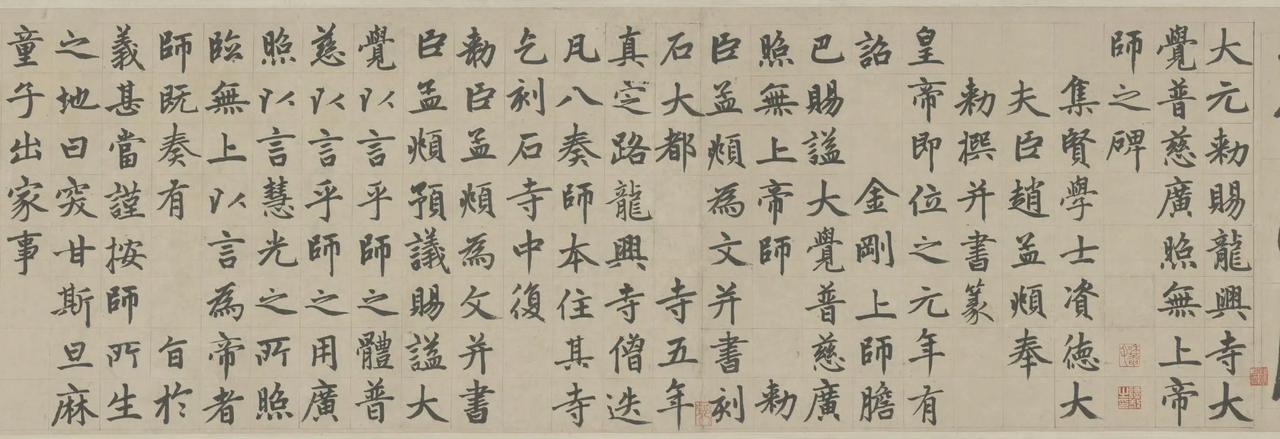 大元勑賜龍興寺大
覺普慈廣照無上帝
師之碑
集賢學士資德大
夫臣趙孟頫奉
勑撰并書篆
皇帝即位之元年有
詔金剛上師膽
巴賜謚大覺普慈廣
照無上帝師勑
臣孟頫為文并書刻
石大都寺五年
真定路龍興寺僧迭
凡八奏師本住其寺
乞刻石寺中復
勑臣孟頫為文并書
臣孟頫預議賜謚大
覺以言乎師之體普
慈以言乎師之用廣
照以言慧光之所照
臨無上以言為帝者
師既奏有旨於
義甚當謹按師所生
之地曰突甘斯旦麻
童子出家事